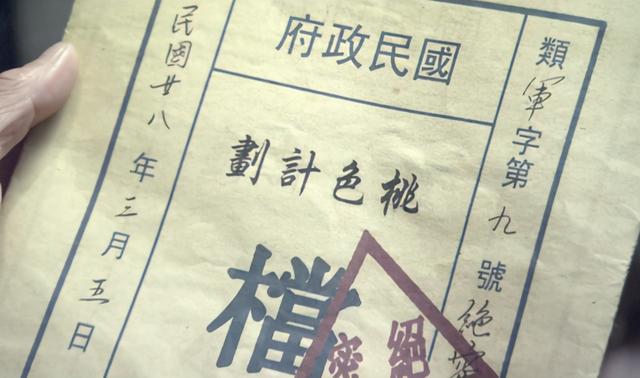 類軍字第九號絕密
國民政府
桃色計劃
檔
絕密
民國廿八年三月五日